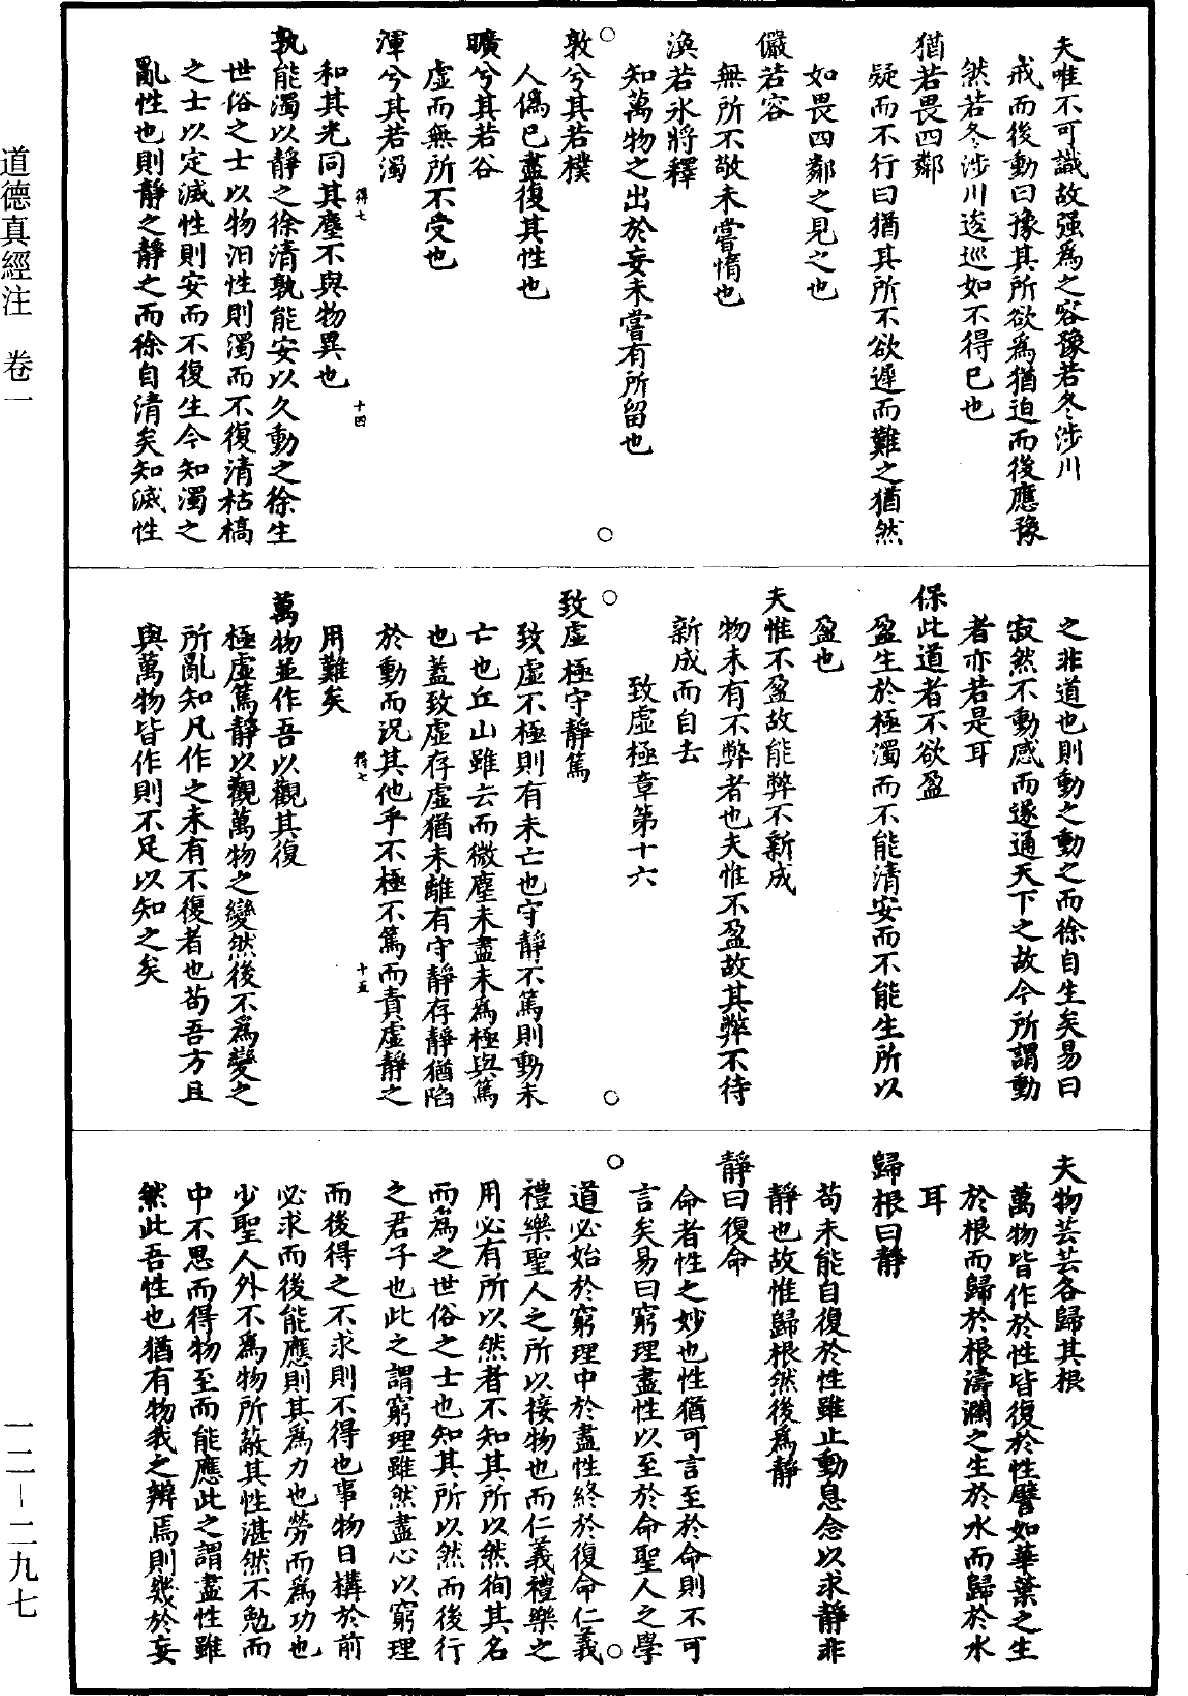 道德真經注 卷一
一二－二九七
夫唯不可識故强爲之容豫若冬涉川
戒而後動曰豫其所欲爲猶迫而後應豫
然若冬涉川逡巡如不得已也
猶若畏四鄰
疑而不行曰猶其所不欲遲而難之猶然
如畏四鄰之見之也
儼若容
無所不敬未嘗惰也
渙若氷將釋
知萬物之出於妄未嘗有所留也
敦兮其若樸
人僞已盡復其性也
曠兮其若谷
虛而無所不受也
渾兮其若濁
和其光同其塵不與物異也
得七
十四
孰能濁以靜之徐清孰能安以久動之徐生
世俗之士以物汩性則濁而不復清枯槁
之士以定滅性則安而不復生今知濁之
亂性也則靜之靜之而徐自清矣知滅性
之非道也則動之動之而徐自生矣易曰
寂然不動感而遂通天下之故今所謂動
者亦若是耳
保此道者不欲盈
盈生於極濁而不能清安而不能生所以
盈也
夫惟不盈故能弊不新成
物未有不弊者也夫惟不盈故其弊不待
新成而自去
致虛極章第十六
致虛極守靜篤
致虛不極則有未亡也守靜不篤則動未
亡也丘山雖去而微塵未盡未爲極與篤
也蓋致虛存虛猶未離有守靜存靜猶陷
於動而況其他乎不極不篤而責虛靜之
得七
十五
用難矣
萬物並作吾以觀其復
極虛篤靜以觀萬物之變然後不爲變之
所亂知凡作之未有不復者也苟吾方且
與萬物皆作則不足以知之矣
夫物芸芸各歸其根
萬物皆作於性皆復於性譬如華葉之生
於根而歸於根濤瀾之生於水而歸於水
耳
歸根曰靜
苟未能自復於性雖止動息念以求靜非
靜也故惟歸根然後爲靜
靜曰復命
命者性之妙也性猶可言至於命則不可
言矣易曰窮理盡性以至於命聖人之學
道必始於窮理中於盡性終於復命仁義
禮樂聖人之所以接物也而仁義禮樂之
用必有所以然者不知其所以然徇其名
而爲之世俗之士也知其所以然而後行
之君子也此之謂窮理雖然盡心以窮理
而後得之不求則不得也事物日構於前
必求而後能應則其爲力也勞而爲功也
少聖人外不爲物所蔽其性湛然不勉而
中不思而得物至而能應此之謂盡性雖
然此吾性也猶有物我之辨焉則幾於妄